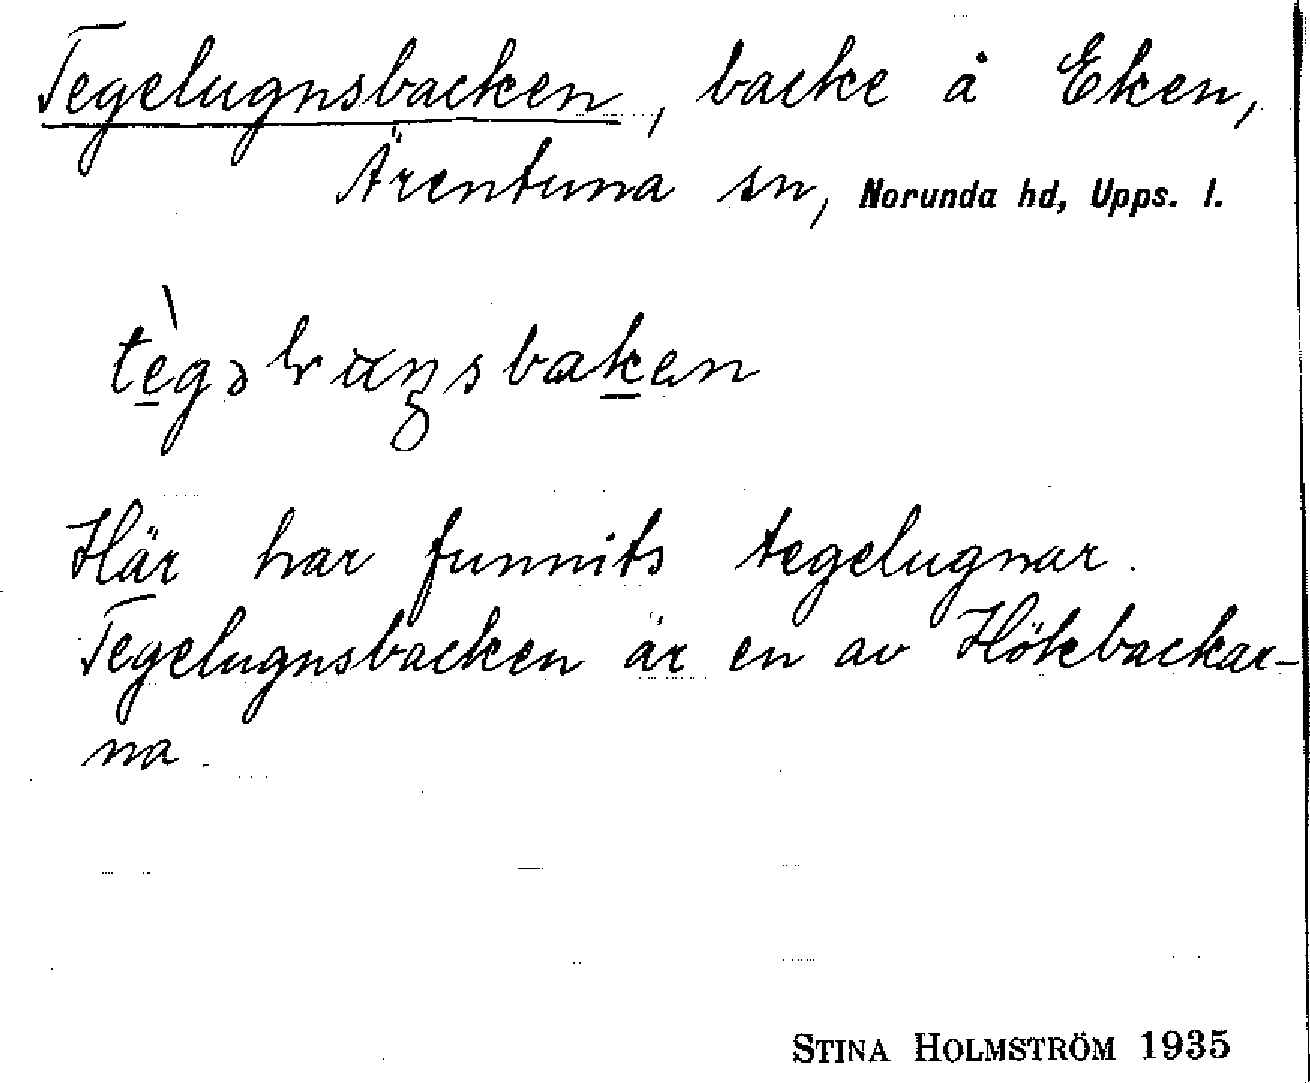 Tegelugnsbacken, backe å Eken,
Ärentuna sn, Norunda hd, Upps. l.
Här har funnits tegelugnar.
Tegelugnsbacken är en av Hökbackar-
na.
STINA HOLMSTRÖM 1935